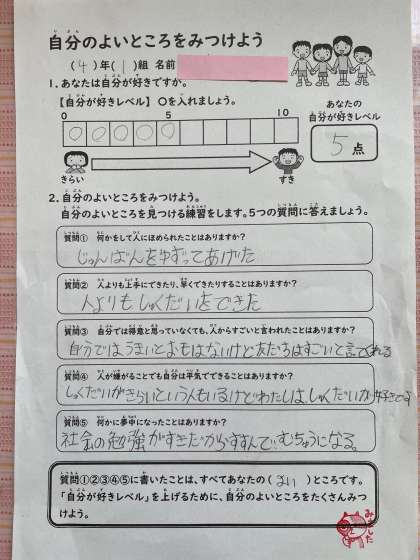 自分のよいところをみつけよう
(4)年(1)組 名前
1.あなたは自分が好きですか。
【自分が好きレベル】 〇を入れましょう。
あなたの
自分が好きレベル
0 5 10
〇〇〇〇〇
5点
きらい すき
2.自分のよいところをみつけよう。
自分のよいところを見つける練習をします。5つの質問に答えましょう。
質問① 何かをして人にほめられたことはありますか?
じゅんばんをゆずってあげた
質問② 人よりも上手にできたり、早くできたりすることはありますか?
人よりもしゅくだいをできた
質問③ 自分では得意と思っていなくても、人からすごいと言われたことはありますか?
自分ではうまいとおもはないけど友だちはすごいと言てくれる
質問④ 人が嫌がることでも自分は平気でできることはありますか?
しゅくだいがきらいという人もいるけどわたしはしゅくだいが好きです
質問⑤ 何かに夢中になったことはありますか?
社会の勉強がすきだからすすんでむちゅうになる。
質問①②③④⑤に書いたことは、すべてあなたの(よい)ところです。
「自分が好きレベル」を上げるために、自分のよいところをたくさんみつ
けよう。
みました